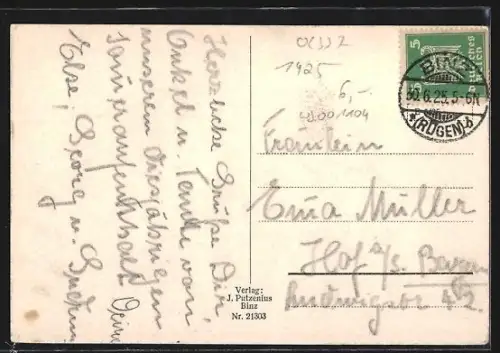 Herzliche Grüße Dir,
Onkel u. Tante von
unserem diesjährigen
Sommeraufenthalt. Deine
Else, Georg u.
Verlag:
J. Putzenius
Binz
Nr. 21303
1925
6,-
5
Deutsches
Reich
BINZ
30.6.25.5-6N
*(RÜGEN)b
Fräulein
Erna Müller
Hof a/S. Bayern
Ludwigstr. 42